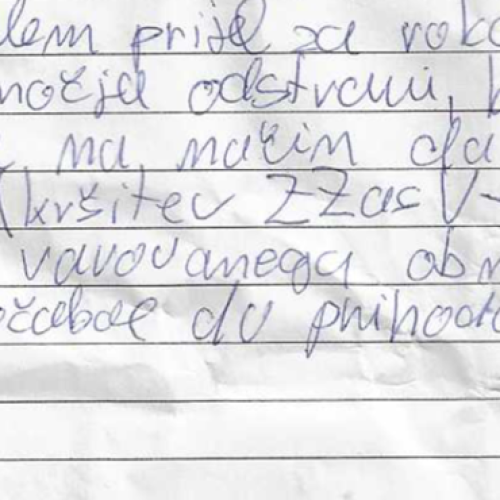 lem prijel za roko
močja odstrani,
na način da
(kršitev ZZasV-
varovanega obm
do prihoda